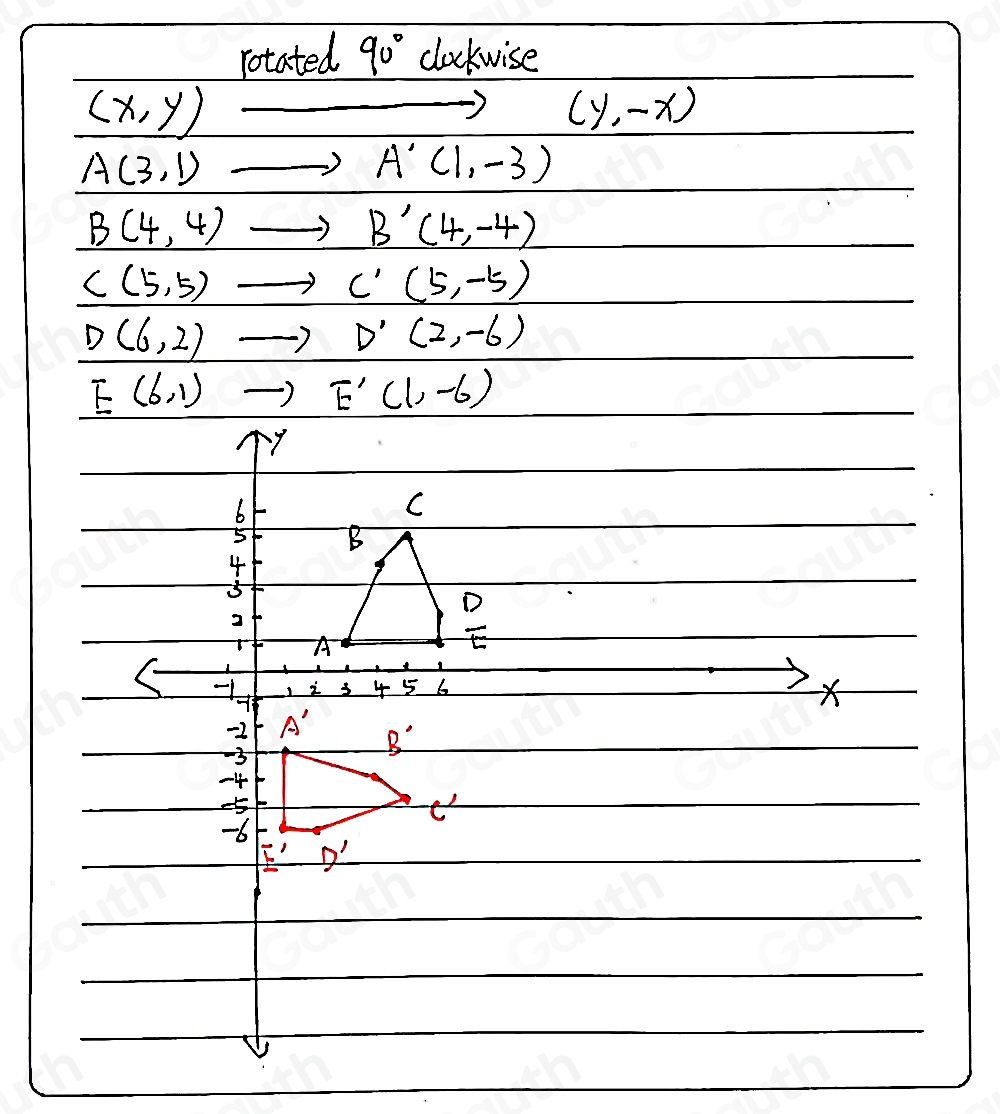 rotated 90° clockwise
(x, y) ⟶ (y, -x)
A(3, 1) ⟶ A' (1, -3)
B(4, 4) ⟶ B' (4, -4)
C (5, 5) ⟶ C' (5, -5)
D (6, 2) ⟶ D' (2, -6)
E (6, 1) ⟶ E' (1, -6)
y
6
C
5
B
4
3
2
D
1
A
E
-1 1 2 3 4 5 6
x
-1
-2
A'
-3
B'
-4
-5
C'
-6
E' D'
Gauth